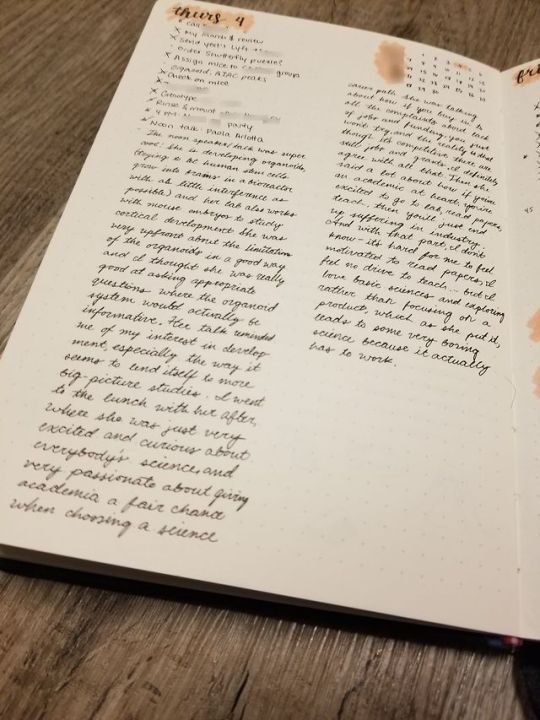 thurs. 4
x call
x My March 4 review
x Send yeti's Lyft
• Order Shutterfly
x Assign mice to groups
• Organoid ATAC peaks
x Check on mice
x
x Genotype
x Rinse & mount
x party
x Noon talk: Paola Arlotta
- The noon speaker/talk was super
cool: she is developing organoids
(trying to get human stem cells
grow into brains in a bioreactor
with as little interference as
possible) and her lab also works
with mouse embryos to study
cortical development. She was
very upfront about the limitations
of the organoids in a good way
and I thought she was really
good at asking appropriate
questions where the organoid
system would actually be
informative. Her talk reminded
me of my interest in develop-
ment, especially the way it
seems to lend itself to more
big-picture studies. I went
to the lunch with her after,
where she was just very
excited and curious about
everybody's science, and
very passionate about giving
academia a fair chance
when choosing a science
career path. She was talking
about how if you buy in to
all the complaints about lack
of jobs and funding, you just
won't try, and the reality is that
though it's competitive there are
still jobs and grants. I definitely
agree with all that. Then she
said a lot about how if you're
an academic at heart, you're
excited to go to lab, read papers,
teach, then you'll just end
up suffering in industry.
And with that part, I don't
know - it's hard for me to feel
motivated to read papers, I
feel no drive to teach... but I
love basic sciences and exploring
rather than focusing on a
product, which as she put it,
leads to some very boring
science because it actually
has to work.
fri
45